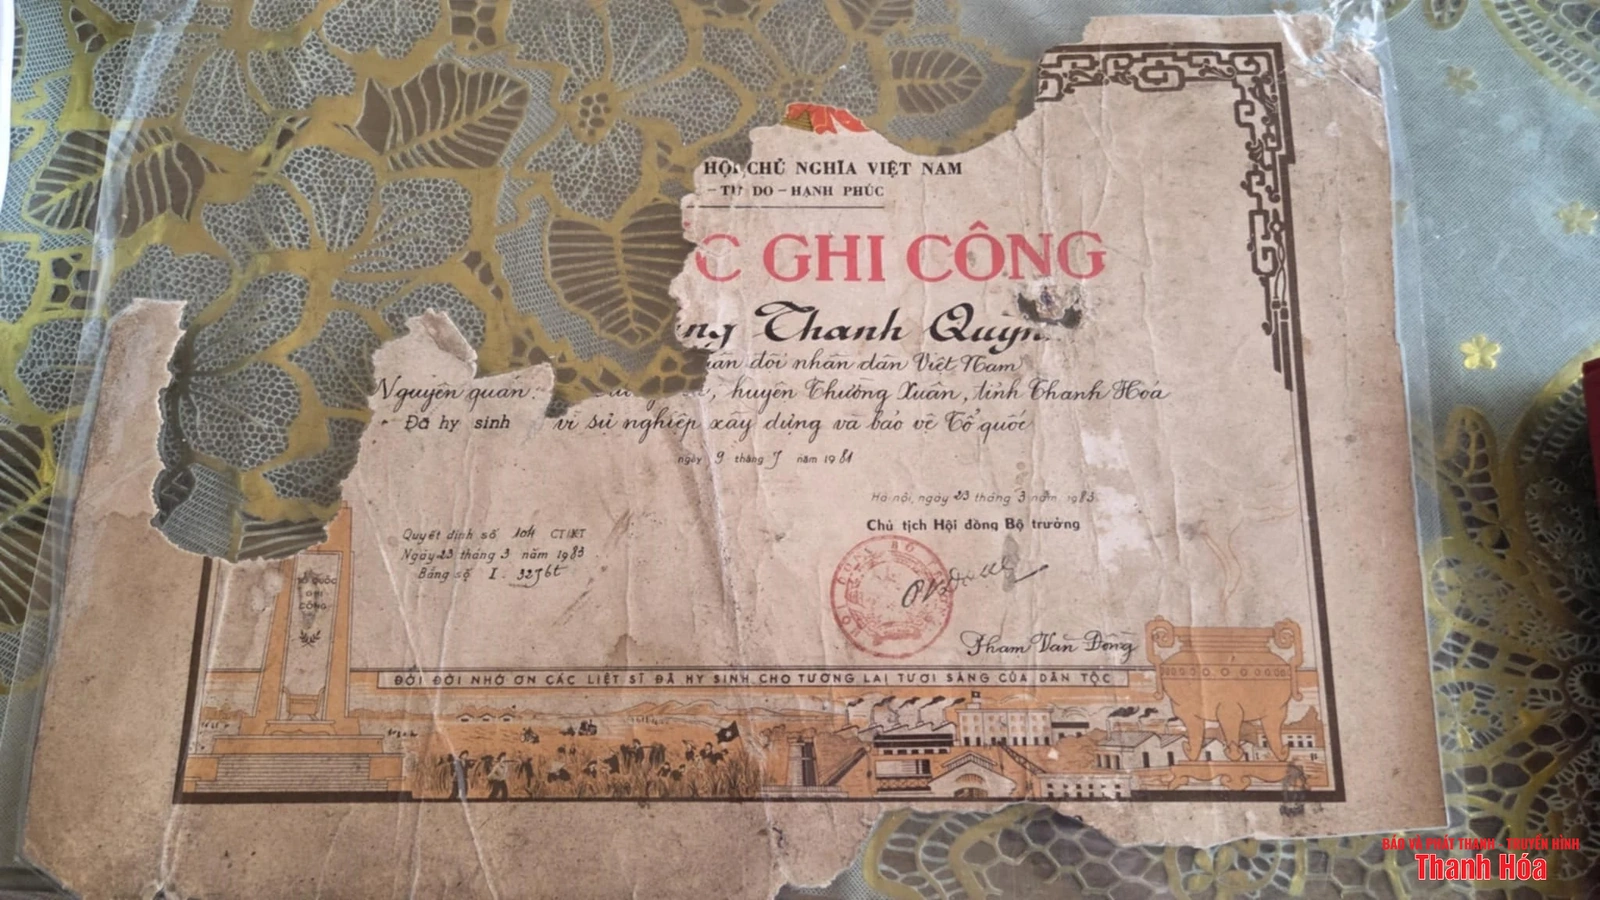 HỘI CHỦ NGHĨA VIỆT NAM
– TỰ DO – HẠNH PHÚC
C GHI CÔNG
ng Thanh Quỳn
ân đội nhân dân Việt Nam
Nguyên quán: huyện Thường Xuân, tỉnh Thanh Hóa
Đã hy sinh vì sự nghiệp xây dựng và bảo vệ Tổ quốc
ngày 9 tháng 7 năm 1981
Hà nội, ngày 23 tháng 3 năm 1983
Chủ tịch Hội đồng Bộ trưởng
Quyết định số 104 CT/KT
Ngày 23 tháng 3 năm 1983
Bằng số I.
Phạm Văn Đồng
TỔ QUỐC
GHI
CÔNG
ĐỜI ĐỜI NHỚ ƠN CÁC LIỆT SĨ ĐÃ HY SINH CHO TƯƠNG LAI TƯƠI SÁNG CỦA DÂN TỘC
BÁO VÀ PHÁT THANH - TRUYỀN HÌNH
Thanh Hóa